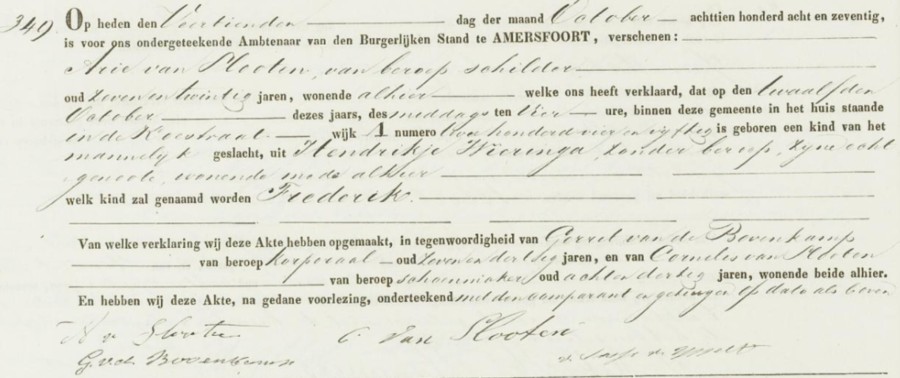 349. Op heden den Veertienden dag der maand October achttien honderd acht en zeventig,
is voor ons ondergeteekende Ambtenaar van den Burgerlijken Stand te AMERSFOORT, verschenen:
Arie van Slooten, van beroep schilder
oud zeven en twintig jaren, wonende alhier welke ons heeft verklaard, dat op den twaalfden
October dezes jaars, des middags ten vier ure, binnen deze gemeente in het huis staande
in de Koestraat wijk A numero honderd vier en vijftig is geboren een kind van het
mannelijk geslacht, uit Hendrikje Wieringa, zonder beroep, zijne echt
genoote, wonende mede alhier
welk kind zal genaamd worden Frederik.
Van welke verklaring wij deze Akte hebben opgemaakt, in tegenwoordigheid van Gerret van de Bovenkamp
van beroep Korporaal oud zeven en dertig jaren, en van Cornelis van Slooten
van beroep schoenmaker oud acht en dertig jaren, wonende beide alhier.
En hebben wij deze Akte, na gedane voorlezing, onderteekend met den comparant en getuigen op dato als boven
A v Slooten C van Slooten
G. vd. Bovenkamp